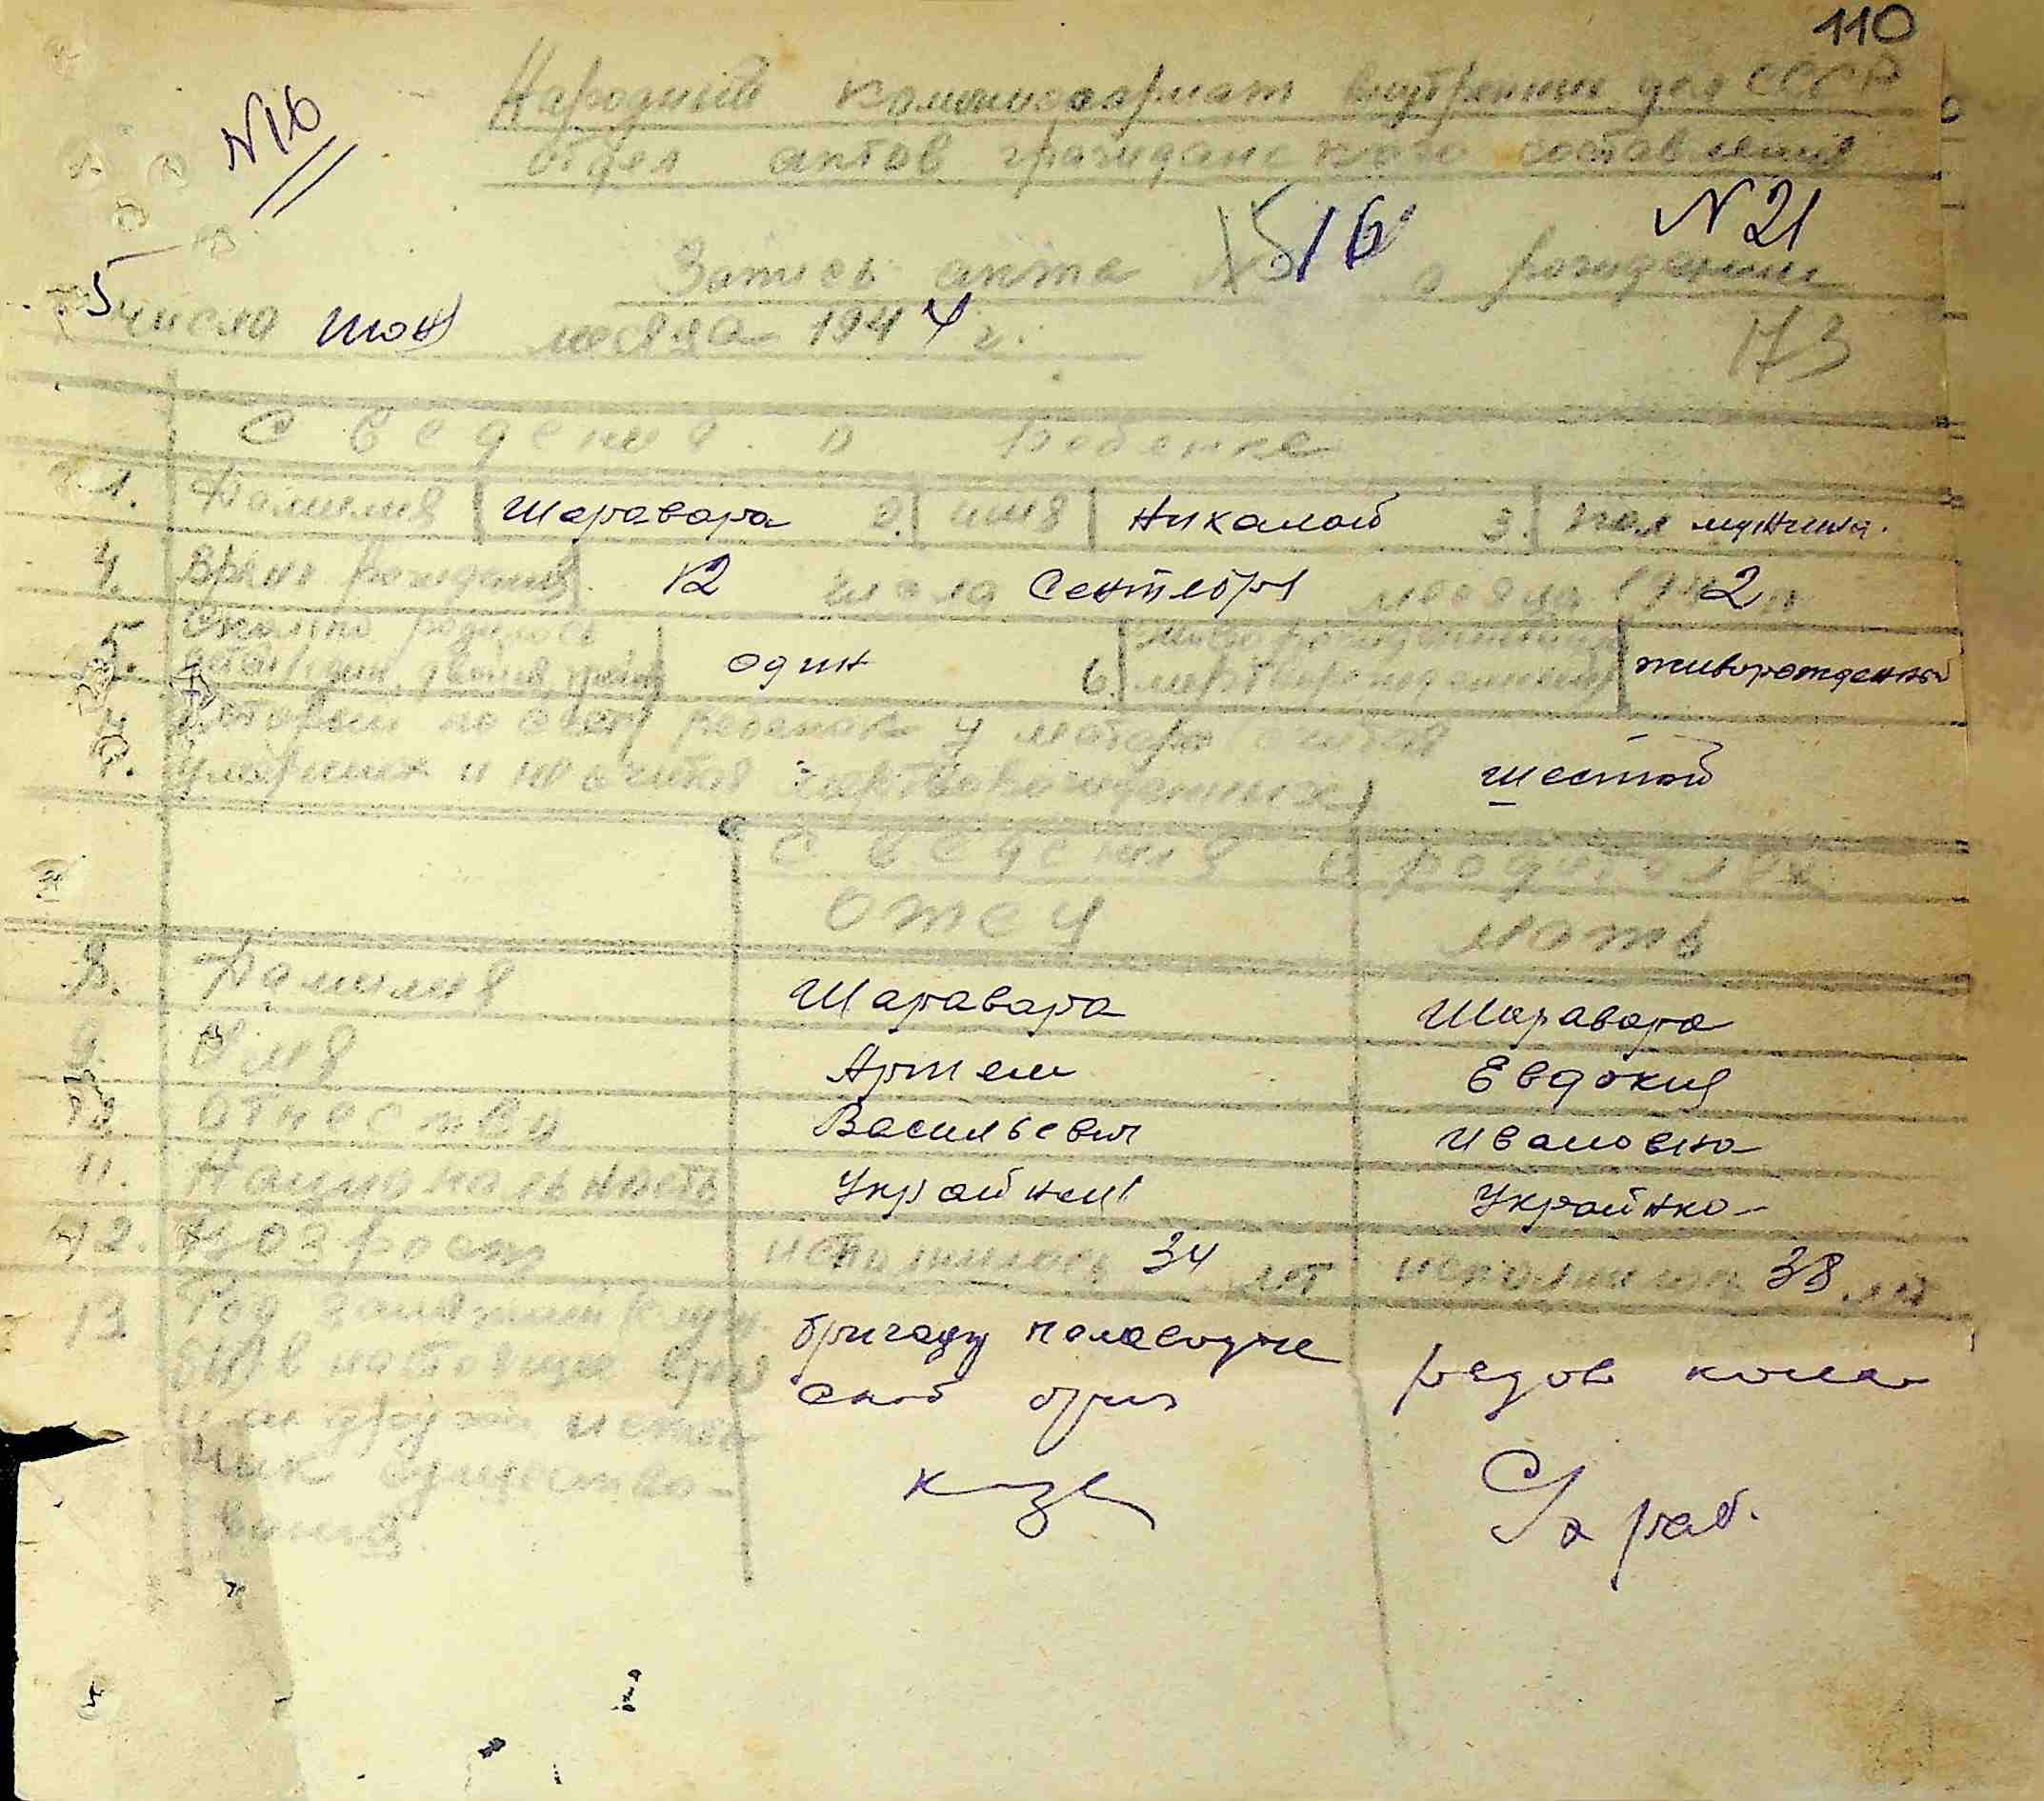 110
№16
Народный комиссариат внутренних дел СССР
отдел актов гражданского составления
№21
Запись акта № 16 о рождении
5 числа июня месяца 1944 г.
173
Сведения о ребенке
1. Фамилия Шаравара 2. имя Никалай 3. пол мужчина.
4. Время рождения 12 числа Сентября месяца 1942 г
5. Сколько родилось
детей один 6. мертворожденный живорожденный
который по счету ребенок у матери считая
умерших и не считая мертворожденных шестой
Сведения о родителях
отец мать
8. Фамилия Шаравара Шаравара
9. Имя Артем Евдокия
10. отчество Васильевич Ивановна
11. Национальность Украйнец Украйнка
12. Возраст исполнилось 34 лет исполнилось 38 лет
13. Род занятий
в настоящее врем
или другой источ
ник существо-
вания
С/х раб.